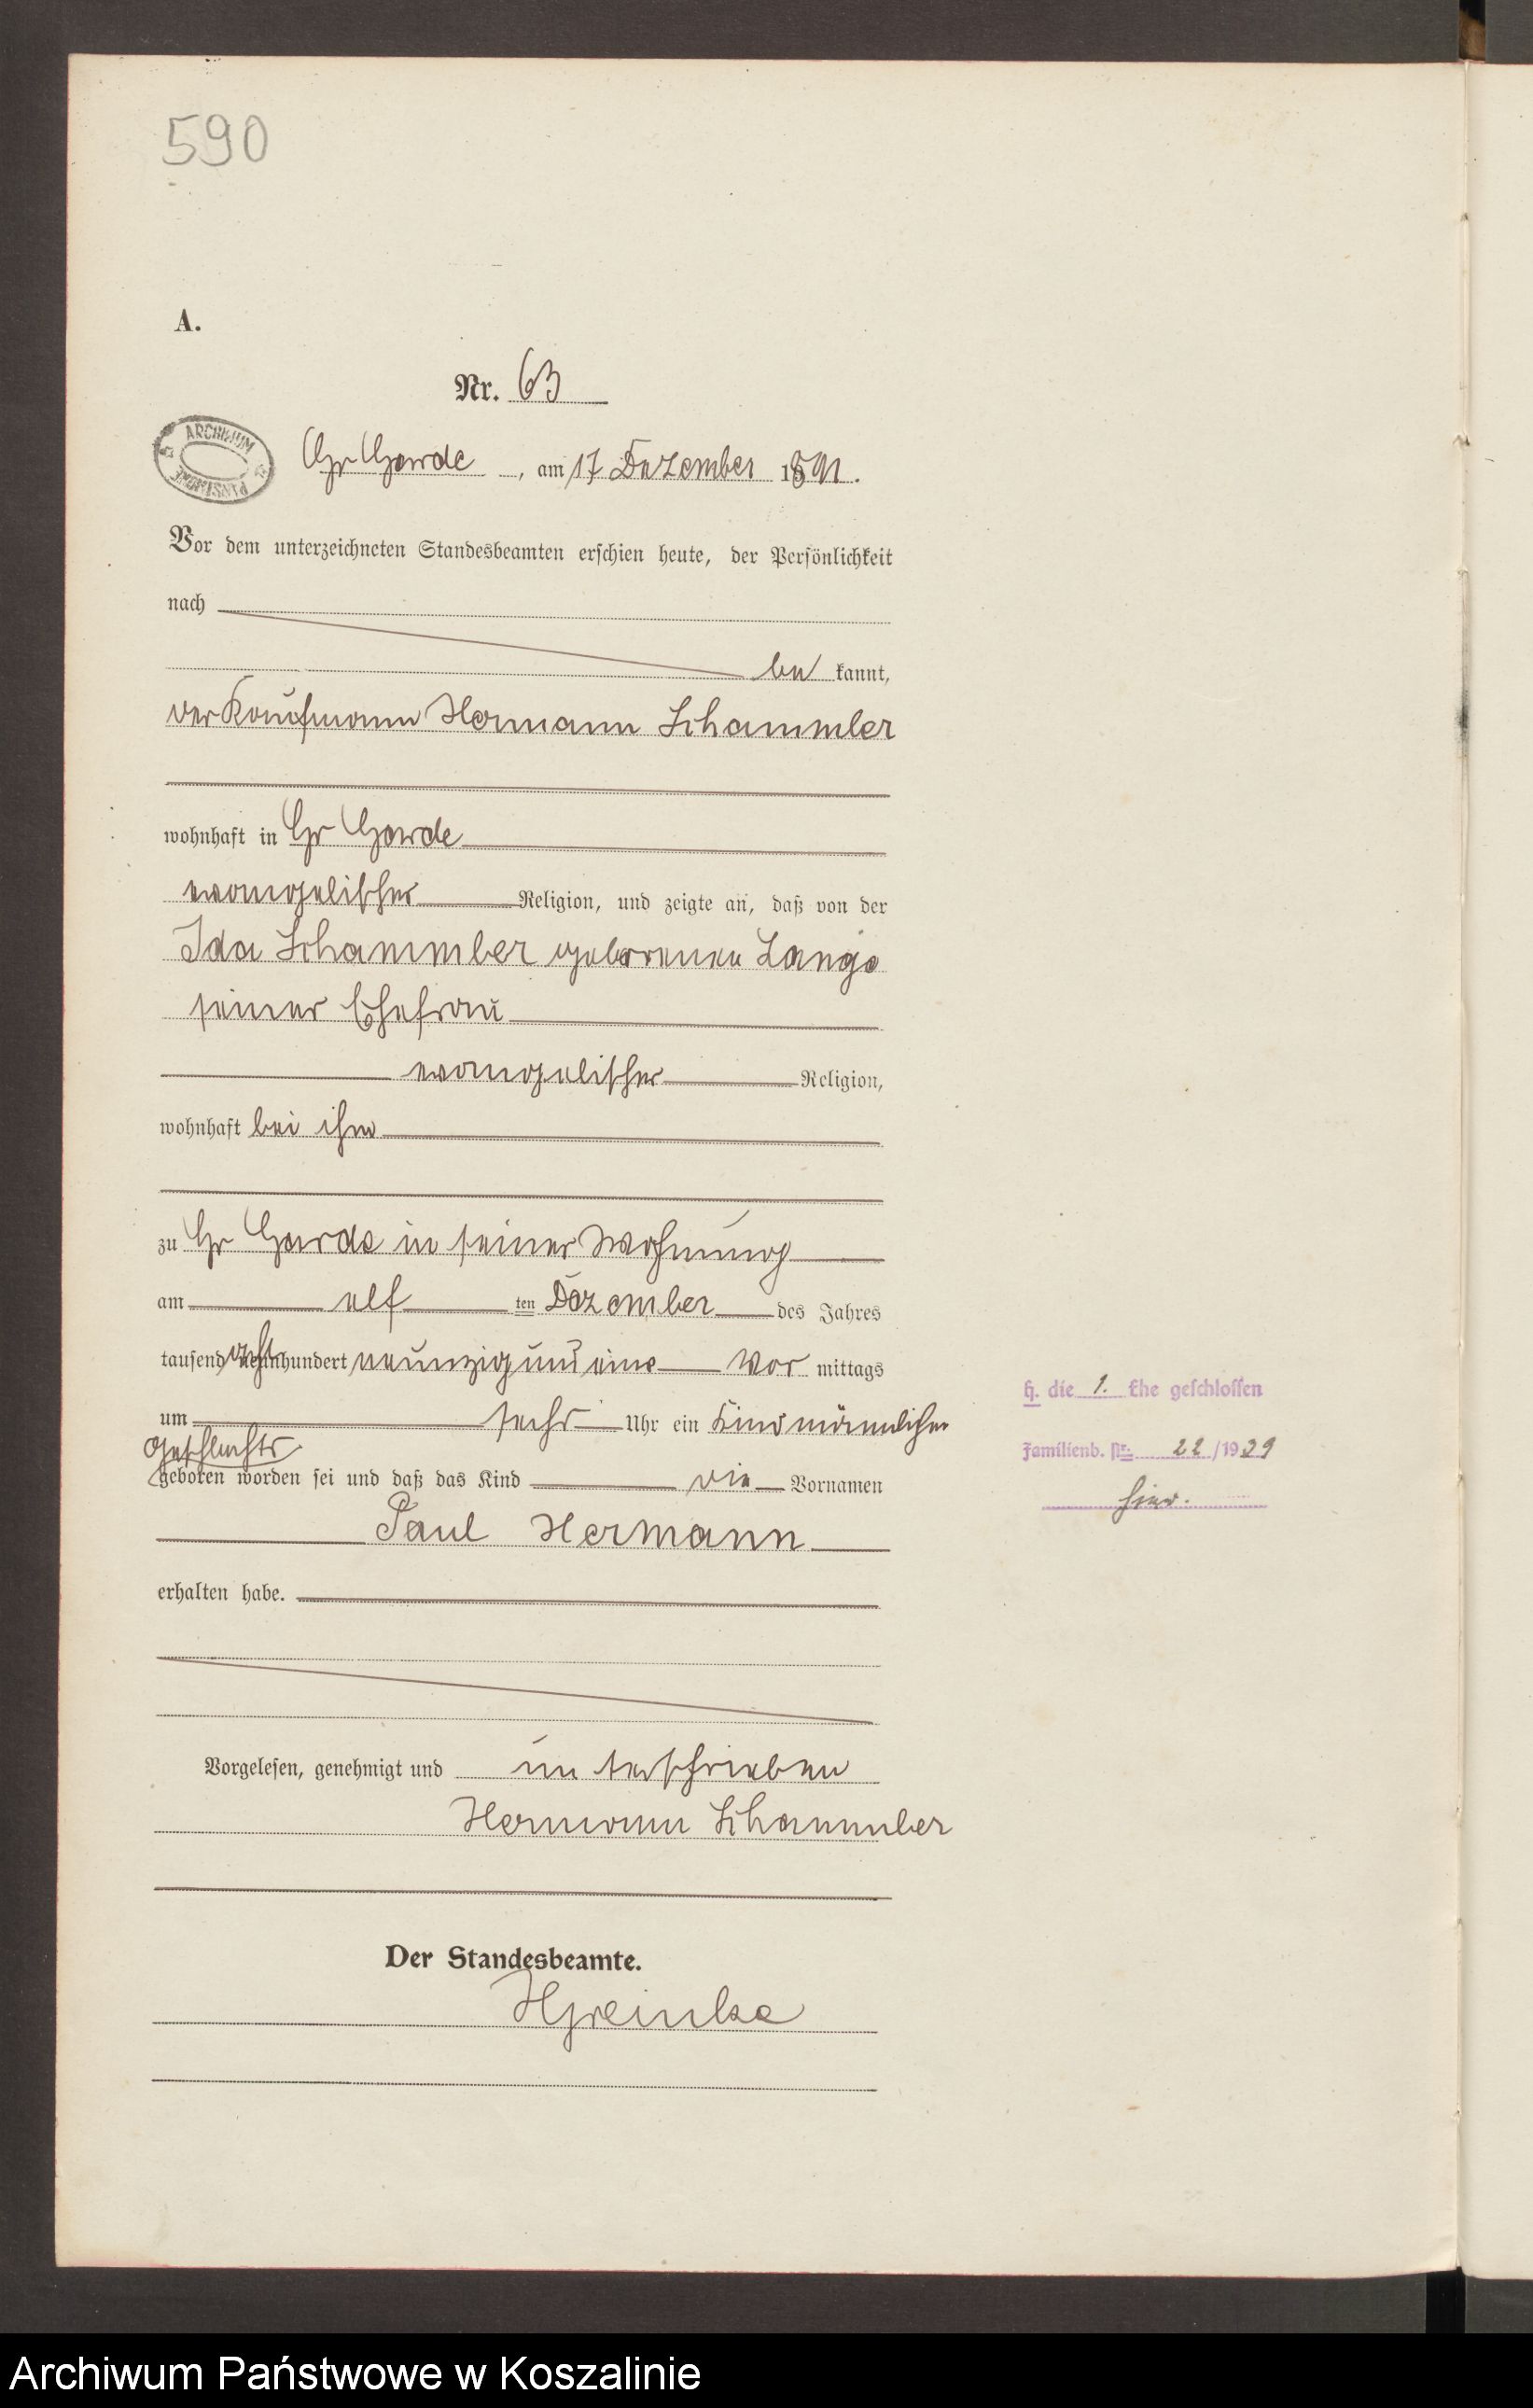 590
A.
Nr. 63
ARCHIWUM PAŃSTWOWE
Gr Garde, am 17 Dezember 1891.
Vor dem unterzeichneten Standesbeamten erschien heute, der Persönlichkeit
nach
be kannt,
der Kaufmann Hermann Schammler
wohnhaft in Gr Garde
evangelischer Religion, und zeigte an, daß von der
Ida Schammler geborenen Lange
seiner Ehefrau
evangelischer Religion,
wohnhaft bei ihm
zu Gr Garde in seiner Wohnung
am elf ten Dezember des Jahres
tausend acht neunhundert neunzig und eins Vor mittags
um sechs Uhr ein Kind männlichen
Geschlechts
geboren worden sei und daß das Kind die Vornamen
Paul Hermann
erhalten habe.
Vorgelesen, genehmigt und unterschrieben
Hermann Schammler
Der Standesbeamte.
H. die 1. Ehe geschlossen
Familienb. Nr. 22/1939
hier.
Archiwum Państwowe w Koszalinie